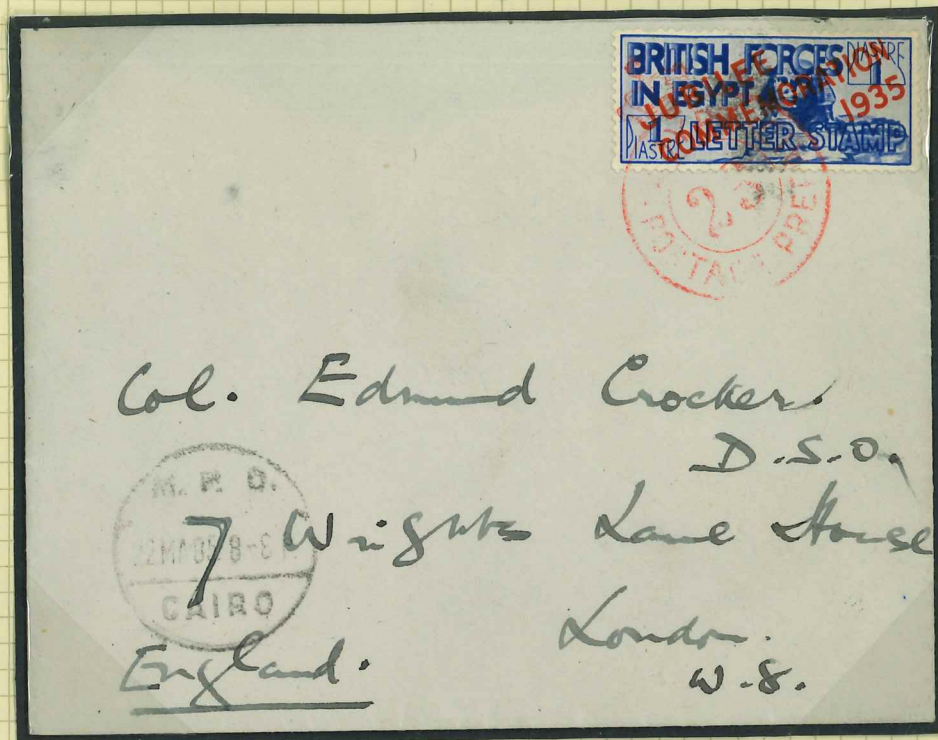 BRITISH FORCES
IN EGYPT
1 PIASTRE
1 PIASTRE
LETTER STAMP
JUBILEE
COMMEMORATION
1935
23
Col. Edmund Crocker.
D.S.O.
7 Wrights Lane House
London.
W.8.
England.
CAIRO